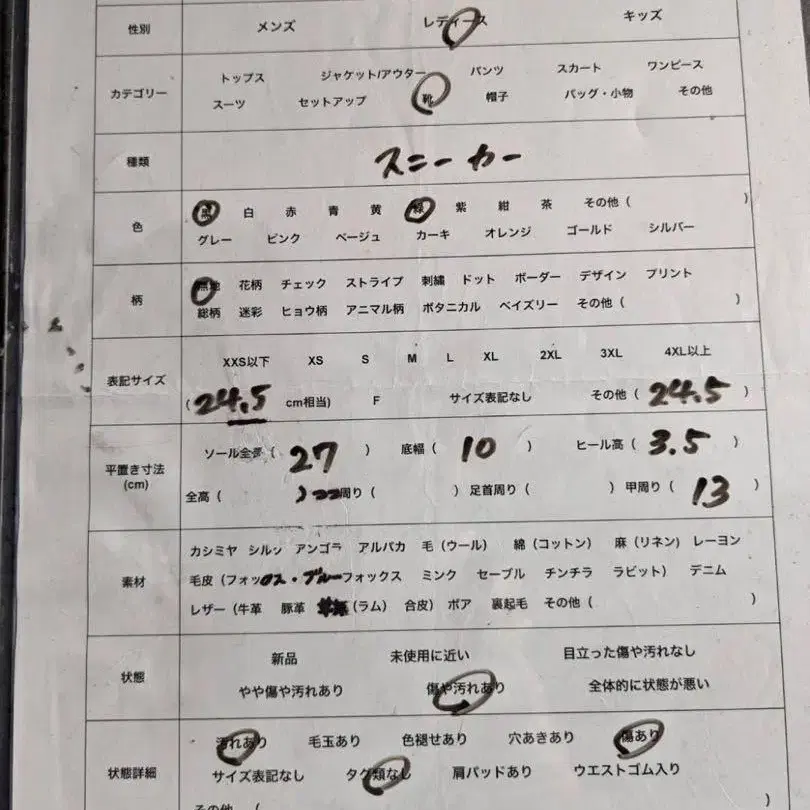 性別 メンズ レディース キッズ
カテゴリー トップス ジャケット/アウター パンツ スカート ワンピース
スーツ セットアップ 靴 帽子 バッグ・小物 その他
種類 スニーカー
色 黒 白 赤 青 黄 緑 紫 紺 茶 その他 ( )
グレー ピンク ベージュ カーキ オレンジ ゴールド シルバー
柄 無地 花柄 チェック ストライプ 刺繍 ドット ボーダー デザイン プリント
総柄 迷彩 ヒョウ柄 アニマル柄 ボタニカル ペイズリー その他 ( )
表記サイズ XXS以下 XS S M L XL 2XL 3XL 4XL以上
( 24.5 cm相当) F サイズ表記なし その他 ( 24.5 )
平置き寸法 (cm) ソール全長 ( 27 ) 底幅 ( 10 ) ヒール高 ( 3.5 )
全高 ( ) 周り ( ) 足首周り ( ) 甲周り ( 13 )
素材 カシミヤ シルク アンゴラ アルパカ 毛 (ウール) 綿 (コットン) 麻 (リネン) レーヨン
毛皮 (フォックス・ブルーフォックス ミンク セーブル チンチラ ラビット) デニム
レザー (牛革 豚革 (ラム) 合皮) ボア 裏起毛 その他 ( )
状態 新品 未使用に近い 目立った傷や汚れなし
やや傷や汚れあり 傷や汚れあり 全体的に状態が悪い
状態詳細 汚れあり 毛玉あり 色褪せあり 穴あきあり 傷あり
サイズ表記なし タグ類なし 肩パッドあり ウエストゴム入り
その他 ( )